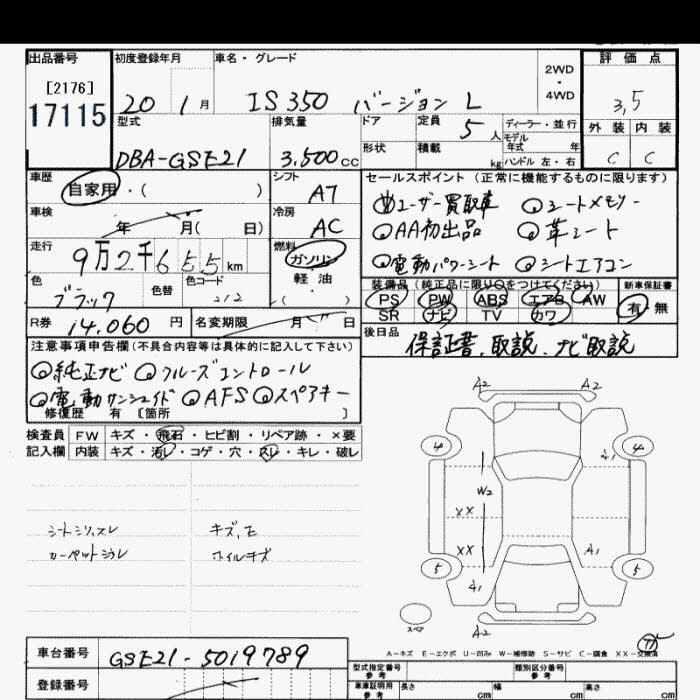 出品番号 初度登録年月 車名・グレード 2WD・4WD 評価点
[2176]
17115
20 1月 IS350 バージョン L 3.5
型式 排気量 ドア 定員 5人 ディーラー・並行 外装 内装
モデル年式 年
DBA-GSE21 3.500cc 形状 積載 kg ハンドル 左・右 C C
車歴 シフト セールスポイント(正常に機能するものに限ります)
自家用・( ) A7 ユーザー買取車 シートメモリー
車検 冷房 AA初出品 革シート
年 月( 日) AC
走行 燃料 電動パワーシート シートエアコン
9万2千655km ガソリン
軽油
( )
色 色替 色コード 装備品(純正品に限り○をつけてください) 新車保証書
ブラック 212 PS PW ABS エアB AW 有・無
SR ナビ TV カワ
R券 14.060円 名変期限 月 日 後日品
保証書、取説、ナビ取説
注意事項申告欄(不具合内容等は具体的に記入して下さい)
純正ナビ クルーズコントロール
電動サンシェイド AFS スペアキー
修復歴 有 [箇所 ]
検査員 FW キズ・飛石・ヒビ割・リペア跡・×要
記入欄 内装 キズ・汚レ・コゲ・穴・スレ・キレ・破レ
A2 A2
4 A1 4
W2
XX
シートシワ,スレ キズ,
カーペットジワレ ホイルキズ
XX A1
5 5
A1
スペア
A2
A-キズ E-エクボ U-凹み W-補修跡 S-サビ C-腐食 XX-交換済
車台番号 GSE21-5019789
型式指定番号 参考 類別区分番号 参考
登録番号 車庫証明用 参考 長さ cm 幅 cm 高さ cm